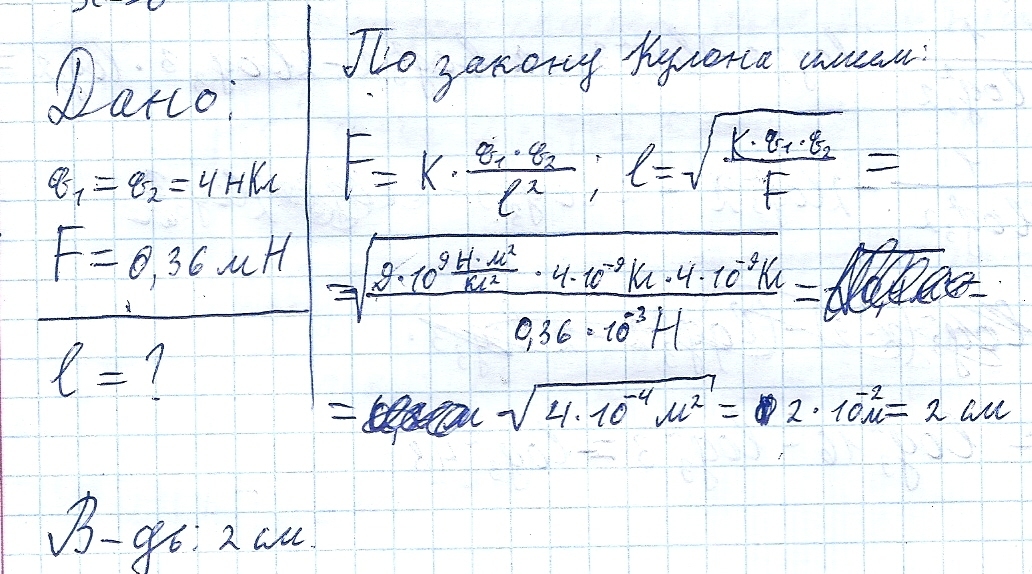 Дано:
q₁ = q₂ = 4 нКл
F = 0,36 мН
l = ?
По закону Кулона имеем:
F = K · q₁ · q₂ / l² ; l = √(K · q₁ · q₂ / F) =
= √(9·10⁹ Н·м²/Кл² · 4·10⁻⁹ Кл · 4·10⁻⁹ Кл / 0,36·10⁻³ Н) =
= √(4·10⁻⁴ м²) = 2·10⁻² м = 2 см
В-дь: 2 см.